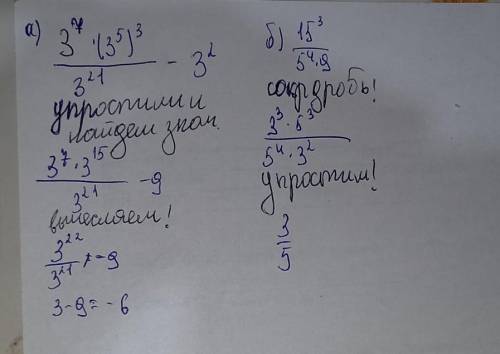 а) (3^7 · (3^5)^3) / 3^21 − 3^2
упростим и
найдем знач.
(3^7 · 3^15) / 3^21 − 9
вычесляем!
3^22 / 3^21 − 9
3 − 9 = − 6
б) 15^3 / (5^4 · 9)
дробь!
(3^3 · 5^3) / (5^4 · 3^2)
упростим!
3 / 5